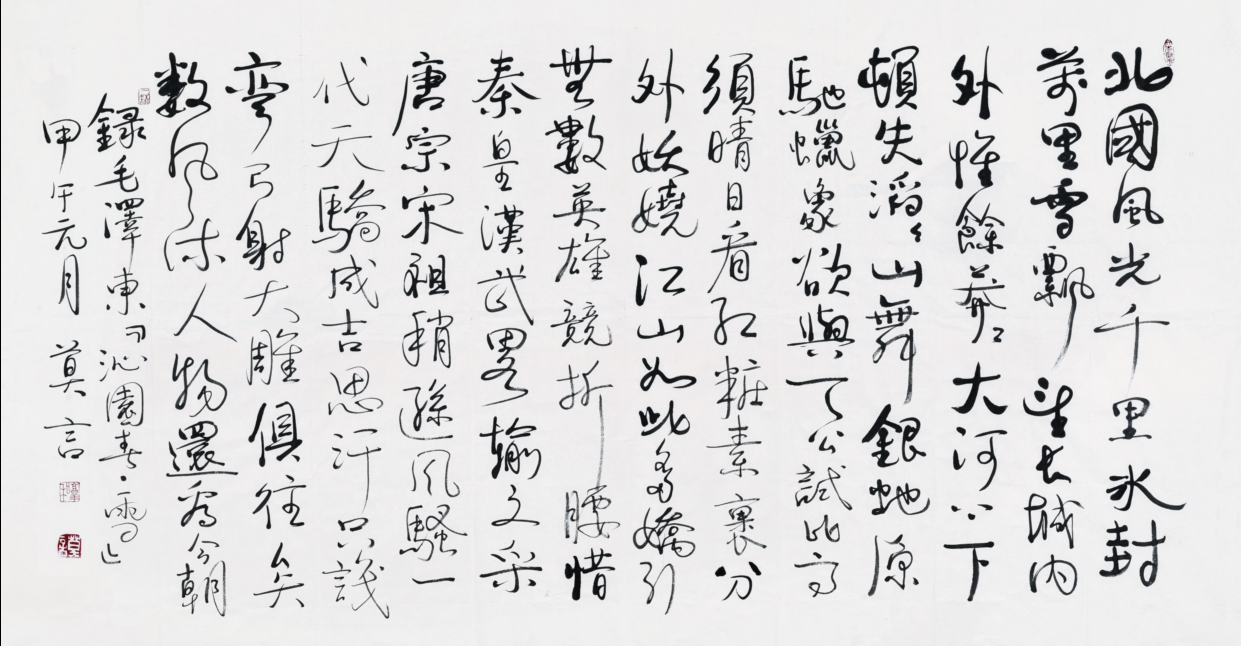 北國風光千里冰封
萬里雪飄望長城内
外惟餘莽〻大河上下
頓失滔〻山舞銀蛇原
馳蠟象欲與天公試比高
須晴日看紅粧素裹分
外妖嬈江山如此多嬌引
無數英雄競折腰惜
秦皇漢武畧輸文采
唐宗宋祖稍遜風騷一
代天驕成吉思汗只識
彎弓射大雕俱往矣
数風流人物還看今朝
録毛澤東詞沁園春·雪
甲午元月 莫言
莫言